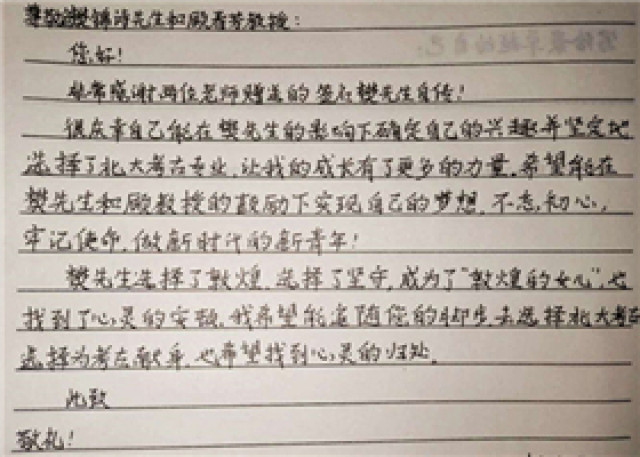 尊敬的樊锦诗先生和顾春芳教授：
您好！
非常感谢两位老师赠送的签名樊先生自传！
很庆幸自己能在樊先生的影响下确定自己的兴趣并坚定地
选择了北大考古专业，让我的成长有了更多的力量，希望能在
樊先生和顾教授的鼓励下实现自己的梦想，不忘初心，
牢记使命，做新时代的新青年！
樊先生选择了敦煌，选择了坚守，成为了“敦煌的女儿”，也
找到了心灵的安放，我希望能追随您的脚步，去选择北大考古
选择为考古献身，也希望找到心灵的归处。
此致
敬礼！